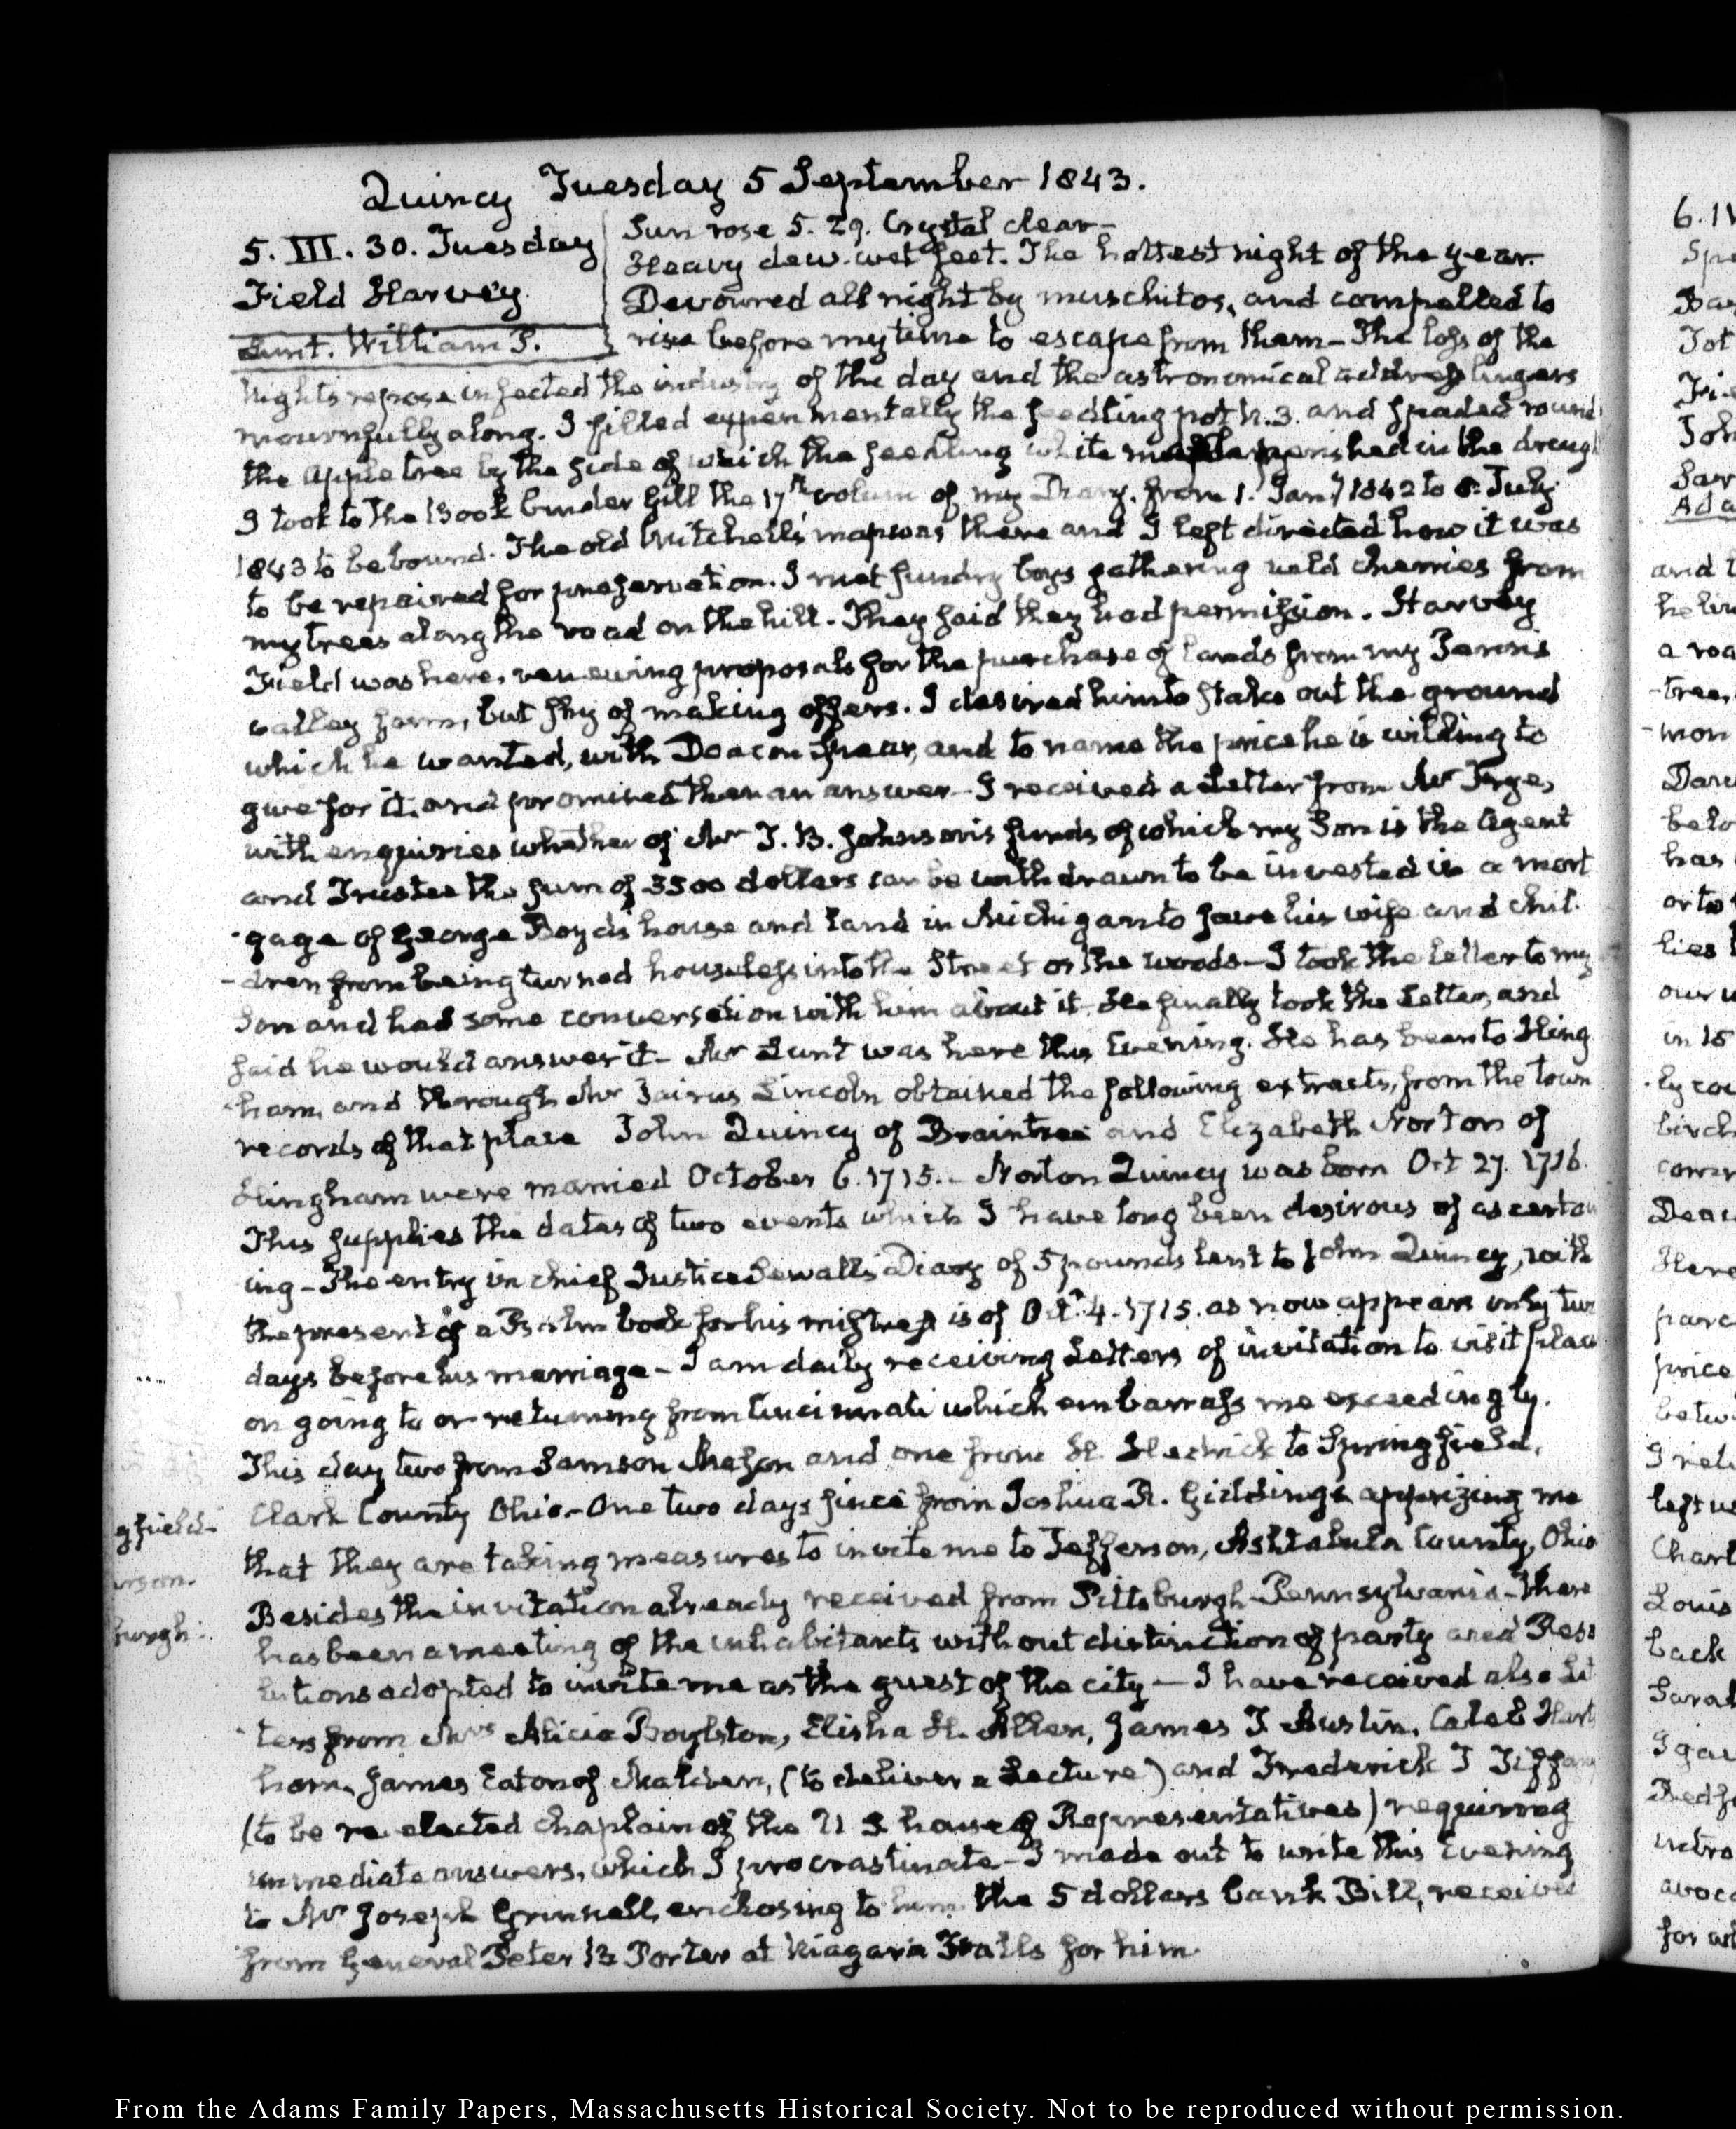 Quincy Tuesday 5 September 1843.
5. III. 30. Tuesday
Field Harvey
Lunt. William P.
Sun rose 5. 29. Crystal clear—
Heavy dew. wet feet. The hottest night of the year.
Devoured all night by muschitos, and compelled to
rise before my time to escape from them— The loss of the
Night's repose infected the industry of the day and the astronomical address lingers
mournfully along. I filled experimentally the seedling pot N. 3. and spaded round
the apple tree by the side of which the seedling white maple perished in the drough
I took to the Book binder Gill the 17th volum of my Diary. from 1. Jany 1842 to 8. July
1843 to be bound. The old Mitchell's map was there and I left directed how it was
to be repaired for preservation. I met sundry boys gathering wild cherries from
my trees along the road on the hill. They said they had permission. Harvey
Field was here, renewing proposals for the purchase of lands from my Penns
valley farm, but shy of making offers. I desired him to stake out the ground
which he wanted, with Deacon Spear, and to name the price he is willing to
give for it. and promised then an answer— I received a Letter from Mr Frye,
with enquiries whether of Mr T. B. Johnson's funds of which my Son is the Agent
and Trustee the sum of 3500 dollars can be withdrawn to be invested in a mort
-gage of George Boyd's house and land in Michigan to save his wife and chil-
-dren from being turned houseless into the Street or the woods— I took the Letter to my
Son and had some conversation with him about it. He finally took the Letter, and
said he would answer it— Mr Lunt was here this Evening. He has been to Hing
-ham, and through Mr Jairus Lincoln obtained the following extracts, from the town
records of that place John Quincy of Braintree and Elizabeth Norton of
Hingham were married October 6. 1715.— Norton Quincy was born Oct 27. 1716.
This supplies the dates of two events which I have long been desirous of ascertain
ing— The entry in chief Justice Sewall's Diary of 5 pounds lent to John Quincy, with
the present of a Psalm book for his mistress is of Oct. 4. 1715. as now appears only two
days before his marriage— I am daily receiving Letters of invitation to visit places
on going to or returning from Cincinnati which embarrass me exceedingly.
This day two from Samson Mason and one from to Springfield,
Clark County Ohio.— One two days since from Joshua R. Giddings apprizing me
that they are taking measures to invite me to Jefferson, Ashtabula County, Ohio
Besides the invitation already received from Pittsburgh Pennsylvania— there
has been a meeting of the inhabitants without distinction of party and Reso
lutions adopted to invite me as the guest of the city— I have received also Let
-ters from Mrs Alicia Boylston, Elisha H. Allen, James T Austin, Caleb Harts
horn, James Eaton of Malden, (to deliver a Lecture) and Frederick T Tiffany
(to be re elected chaplain of the U S house of Representatives) requiring
immediate answers, which I procrastinate— I made out to write this Evening
to Mr Joseph Grinnell, enclosing to him the 5 dollars bank Bill, received
from General Peter B Porter at Niagara Falls for him.
From the Adams Family Papers, Massachusetts Historical Society. Not to be reproduced without permission.